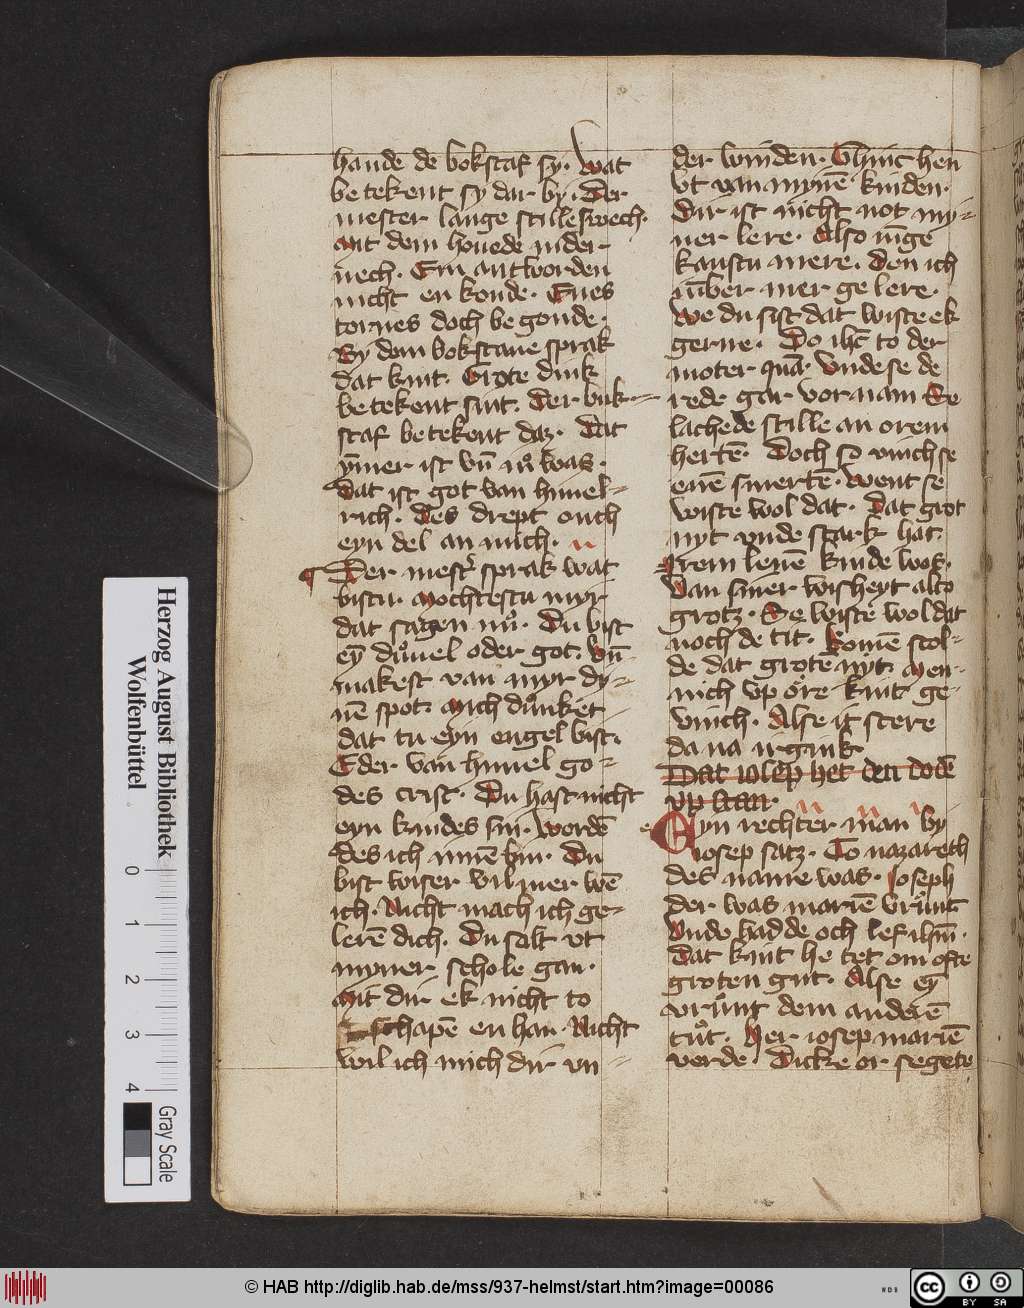 hande de bokstaf sy. Wat
be tekent sy dar by. Der
mester lange stille swech.
Mit dem houede nider
nech. Ein antworden
nicht en konde. Eines
tornes doch be gonde.
By dem bokstaue sprak
dat kint. Grote dink
be tekent sint. Der buk-
staf be tekent daz. Dat
ym̄er ist vn̄ iͦ was.
Dat ist got van himel-
rich. Des drept ouch
eyn del an mich.
Der mestͬ sprak wat
bistu. Mochtestu myr
dat sagen nuͦ. Du bist
eȳ duͦuel oder got. Vn̄
makest van myr dy-
nē spot. Mich duͦnket
dat tu eyn engel bist.
Eder van himel go-
des crist. Du hast nicht
eyn kindes sin. Wordē
des ich innē bin. Du
bist wiser vil mer wē
ich. Nicht mach ich ge-
lerē dich. Du salt vt
myner schole gan.
Mit dir ek nicht to
schapē en han. Nicht
wil ich mich dir vn-
der winden. Ghinc hen
vt van mynē kinden.
Dir ist nicht not my-
ner lere. Also iūge
kanstu mere. Den ich
ūmber mer ge lere.
We du sist dat wiste ek
gerne. Do ihc̄ to der
moter quā. Vnde se de
rede gar vornam Se
lachede stille an orem
hertē. Doch so vinch se
enē smertē. Went se
wiste wol dat. Dat grot
nyt vnde stark hat.
Irem leuē kinde wok.
Van siner wisheyt also
grotz. Se wiste wol dat
noch de tit. Komē scol-
de dat grote nyt. Men-
nich vp ore kint ge-
vinch. Alse it scere
da na irgink.
Dat iosep het den dodē
vp stan.
Eyn rechter man by
iosep satz. To nazareth
des name was. Joseph
der was mariē vruͦnt
Vnde hadde och lef ihm̄.
Dat kint he tet om ofte
groten gut. Alse eȳ
vruͦnt dem anderē
tuͦt. Her iosep mariē
werde. Dicke or segete
Herzog August Bibliothek
Wolfenbüttel
0 1 2 3 4
Gray Scale
© HAB http://diglib.hab.de/mss/937-helmst/start.htm?image=00086
WDB
cc BY SA